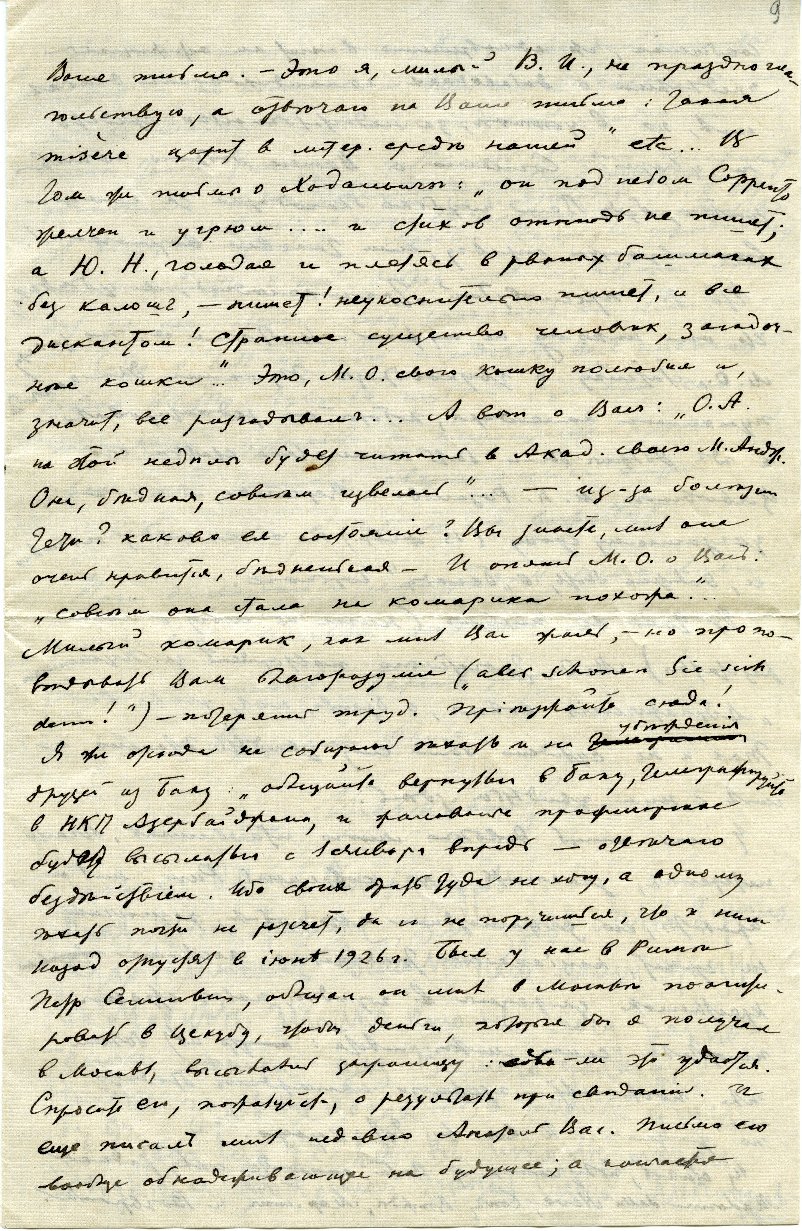 9
Ваше письмо. — Это я, милый В. И., не праздно гла-
гольствую, а отвѣчаю на Ваше письмо: "такая
misère царит в литер. средѣ нашей" etc... В
том же письмѣ о Ходасевичѣ: "он под небом Сорренто
желчен и угрюм .... и стихов отнюдь не пишет;
а Ю. Н., голодая и плетясь в рваных башмаках
без калош, — пишет! неукоснительно пишет, и все
дискантом! Странное существо человѣк, загадоч-
нѣе кошки"... Это, М. О. свою кошку полюбил и,
значит, все разгадывает... А вот о Вас: "О. А.
на этой недѣлѣ будет читать в Акад. свою М. Андр.
Она, бѣдная, совсѣм извелась"... — из-за болѣзни
? каково ее состояніе? Вы знаете, мнѣ она
очень нравится, бѣдненькая — И опять М. О. о Вас:
"совсѣм она стала на комарика похожа"...
Милый комарик, как мнѣ Вас жаль, — но пропо-
вѣдывать Вам благоразуміе ("aber schonen Sie sich
denn!") — потерянный труд. Пріѣзжайте сюда!
Я же отсюда не собираюсь ѣхать и на убѣжденія
друзей из Баку: "обѣщайте вернуться в Баку, телеграфируйте
в НКП Азербайджана, и жалованье профессорское
будет высылаться с 1 января впредь — отвѣчаю
бездѣйствіем. Ибо своих брать туда не хочу, а одному
ѣхать почти не расчет, да и не поручишься, что к ним
назад отпустят в іюнѣ 1926 г. Был у нас в Римѣ
Петр Семенович, обѣщал он мнѣ в Москвѣ поагити-
ровать в Цекубу, чтобы деньги, которые бы я получал
в Москвѣ, высылались заграницу: едва-ли это удастся.
Спросите его, пожалуйста, о результатѣ при свиданіи. И
еще писал мнѣ недавно Анатолій Вас. Письмо его
вообще обнадеживающее на будущее; а касательно